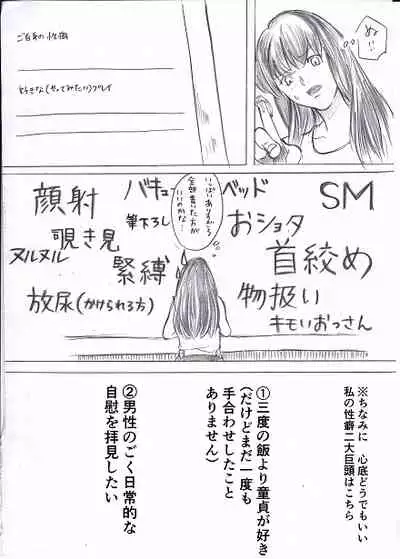 ご自身の性癖
好きな(やってみたい)プレイ
いいのかな…
全部書いた方が
SM
ベッド
バキュ
顔射
おショタ
筆下ろし
覗き見
首絞め
緊縛
ヌルヌル
物扱い
放尿(かけられる方)
キモいおっさん
※ちなみに 心底どうでもいい
私の性癖二大巨頭はこちら
①三度の飯より童貞が好き
(だけどまだ一度も
手合わせしたこと
ありません)
②男性のごく日常的な
自慰を拝見したい